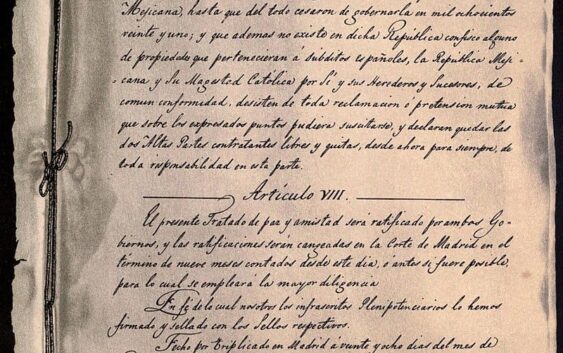 Mejicana, hasta que del todo cesaron de gobernarla en mil ochocientos
veinte y uno; y que ademas no existe en dicha República confisco alguno
de propiedades que pertenecieran á subditos españoles, la República Meji-
cana y Su Magestad Católica por Sí y sus Herederos y Sucesores, de
comun conformidad, desisten de toda reclamacion ó pretension mutua
que sobre los expresados puntos pudiera suscitarse, y declaran quedar las
dos Altas Partes contratantes libres y quitas, desde ahora para siempre, de
toda responsabilidad en esta parte.
Artículo VIII.
El presente Tratado de paz y amistad será ratificado por ambos Go-
biernos, y las ratificaciones serán cangeadas en la Corte de Madrid en el
término de nueve meses contados desde este dia, ó antes si fuere posible,
para lo cual se empleará la mayor diligencia
En fé de lo cual nosotros los infrascritos Plenipotenciarios lo hemos
firmado y sellado con los Sellos respectivos.
Fecho por triplicado en Madrid á veinte y ocho dias del mes de